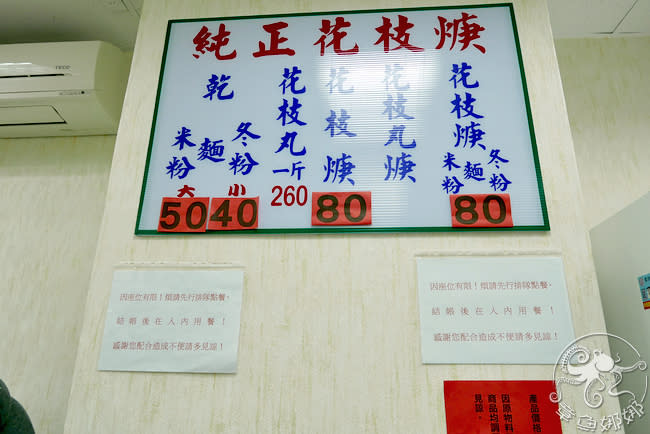 純正花枝焿
花枝焿
米粉 麵 冬粉
80
花枝丸焿
花枝焿
80
花枝丸
一斤
260
乾
米粉 麵 冬粉
大 小
50 40
因座位有限！煩請先行排隊點餐，
結帳後在入內用餐！
感謝您配合造成不便請多見諒！
因座位有限！煩請先行排隊點餐，
結帳後在入內用餐！
感謝您配合造成不便請多見諒！
產品價格
因原物料
商品均調
見諒。
章魚娜娜